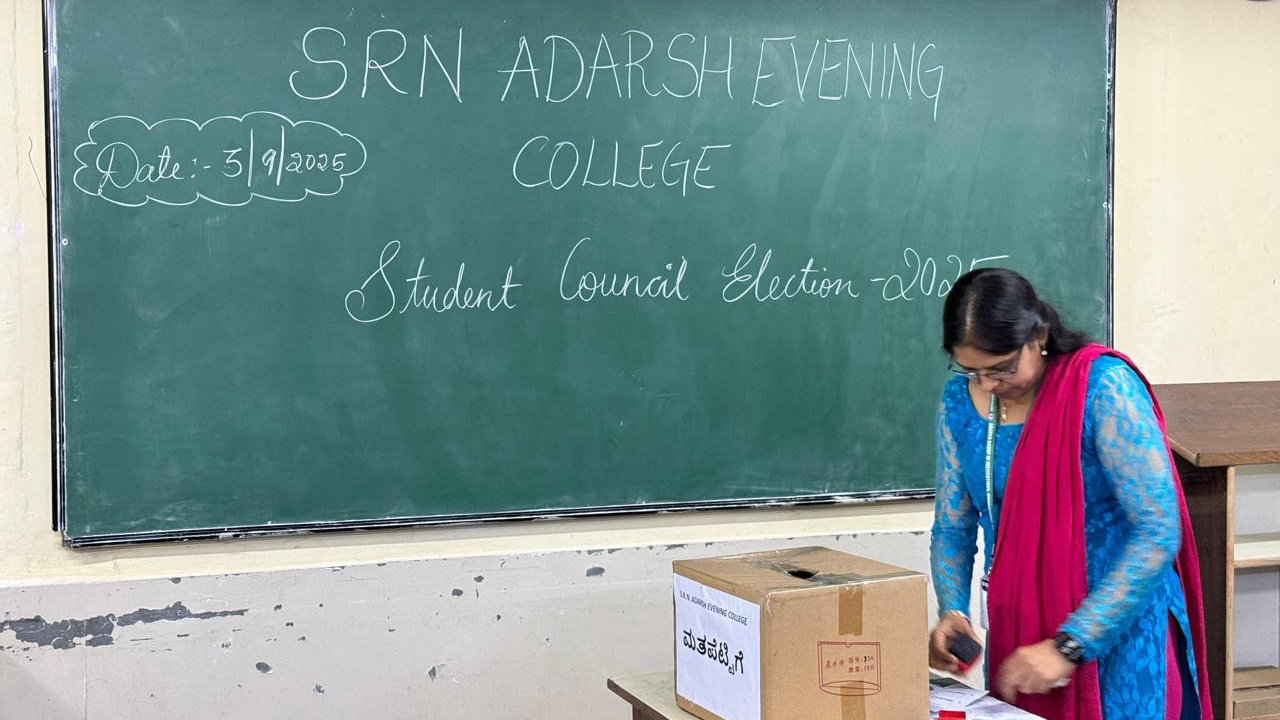 SRN ADARSH EVENING
COLLEGE
Date:- 3|9|2025
Student Council Election - 2025
S.R.N. ADARSH EVENING COLLEGE
ಮತಪೆಟ್ಟಿಗೆ